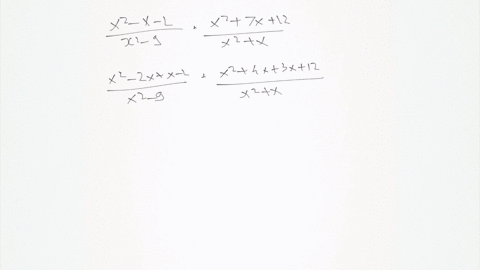 x²-x-2/x²-9 · x²+7x+12/x²+x
x²-2x+x-2/x²-9 · x²+4x+3x+12/x²+x